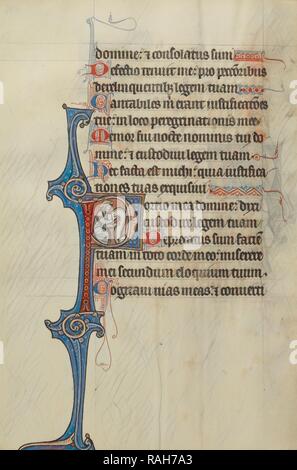 domine: et consolatus sum
Defectio tenuit me: pro peccatoribus
derelinquentib; legem tuam
Cantabiles m erant iustificatoes
tue: in loco peregrinationis mee
Memor fui nocte nominis tui do
mine: et custodiui legem tuam
Hec facta est michi: quia iustifica
tiones tuas exquisiui
Portio mea domine: dixi
custodire legem tuam
Deprecatus sum faciem
tuam in toto corde meo: miserere
mei secundum eloquium tuum
Cogitaui uias meas: et conuerti
alamy
RAH7A3